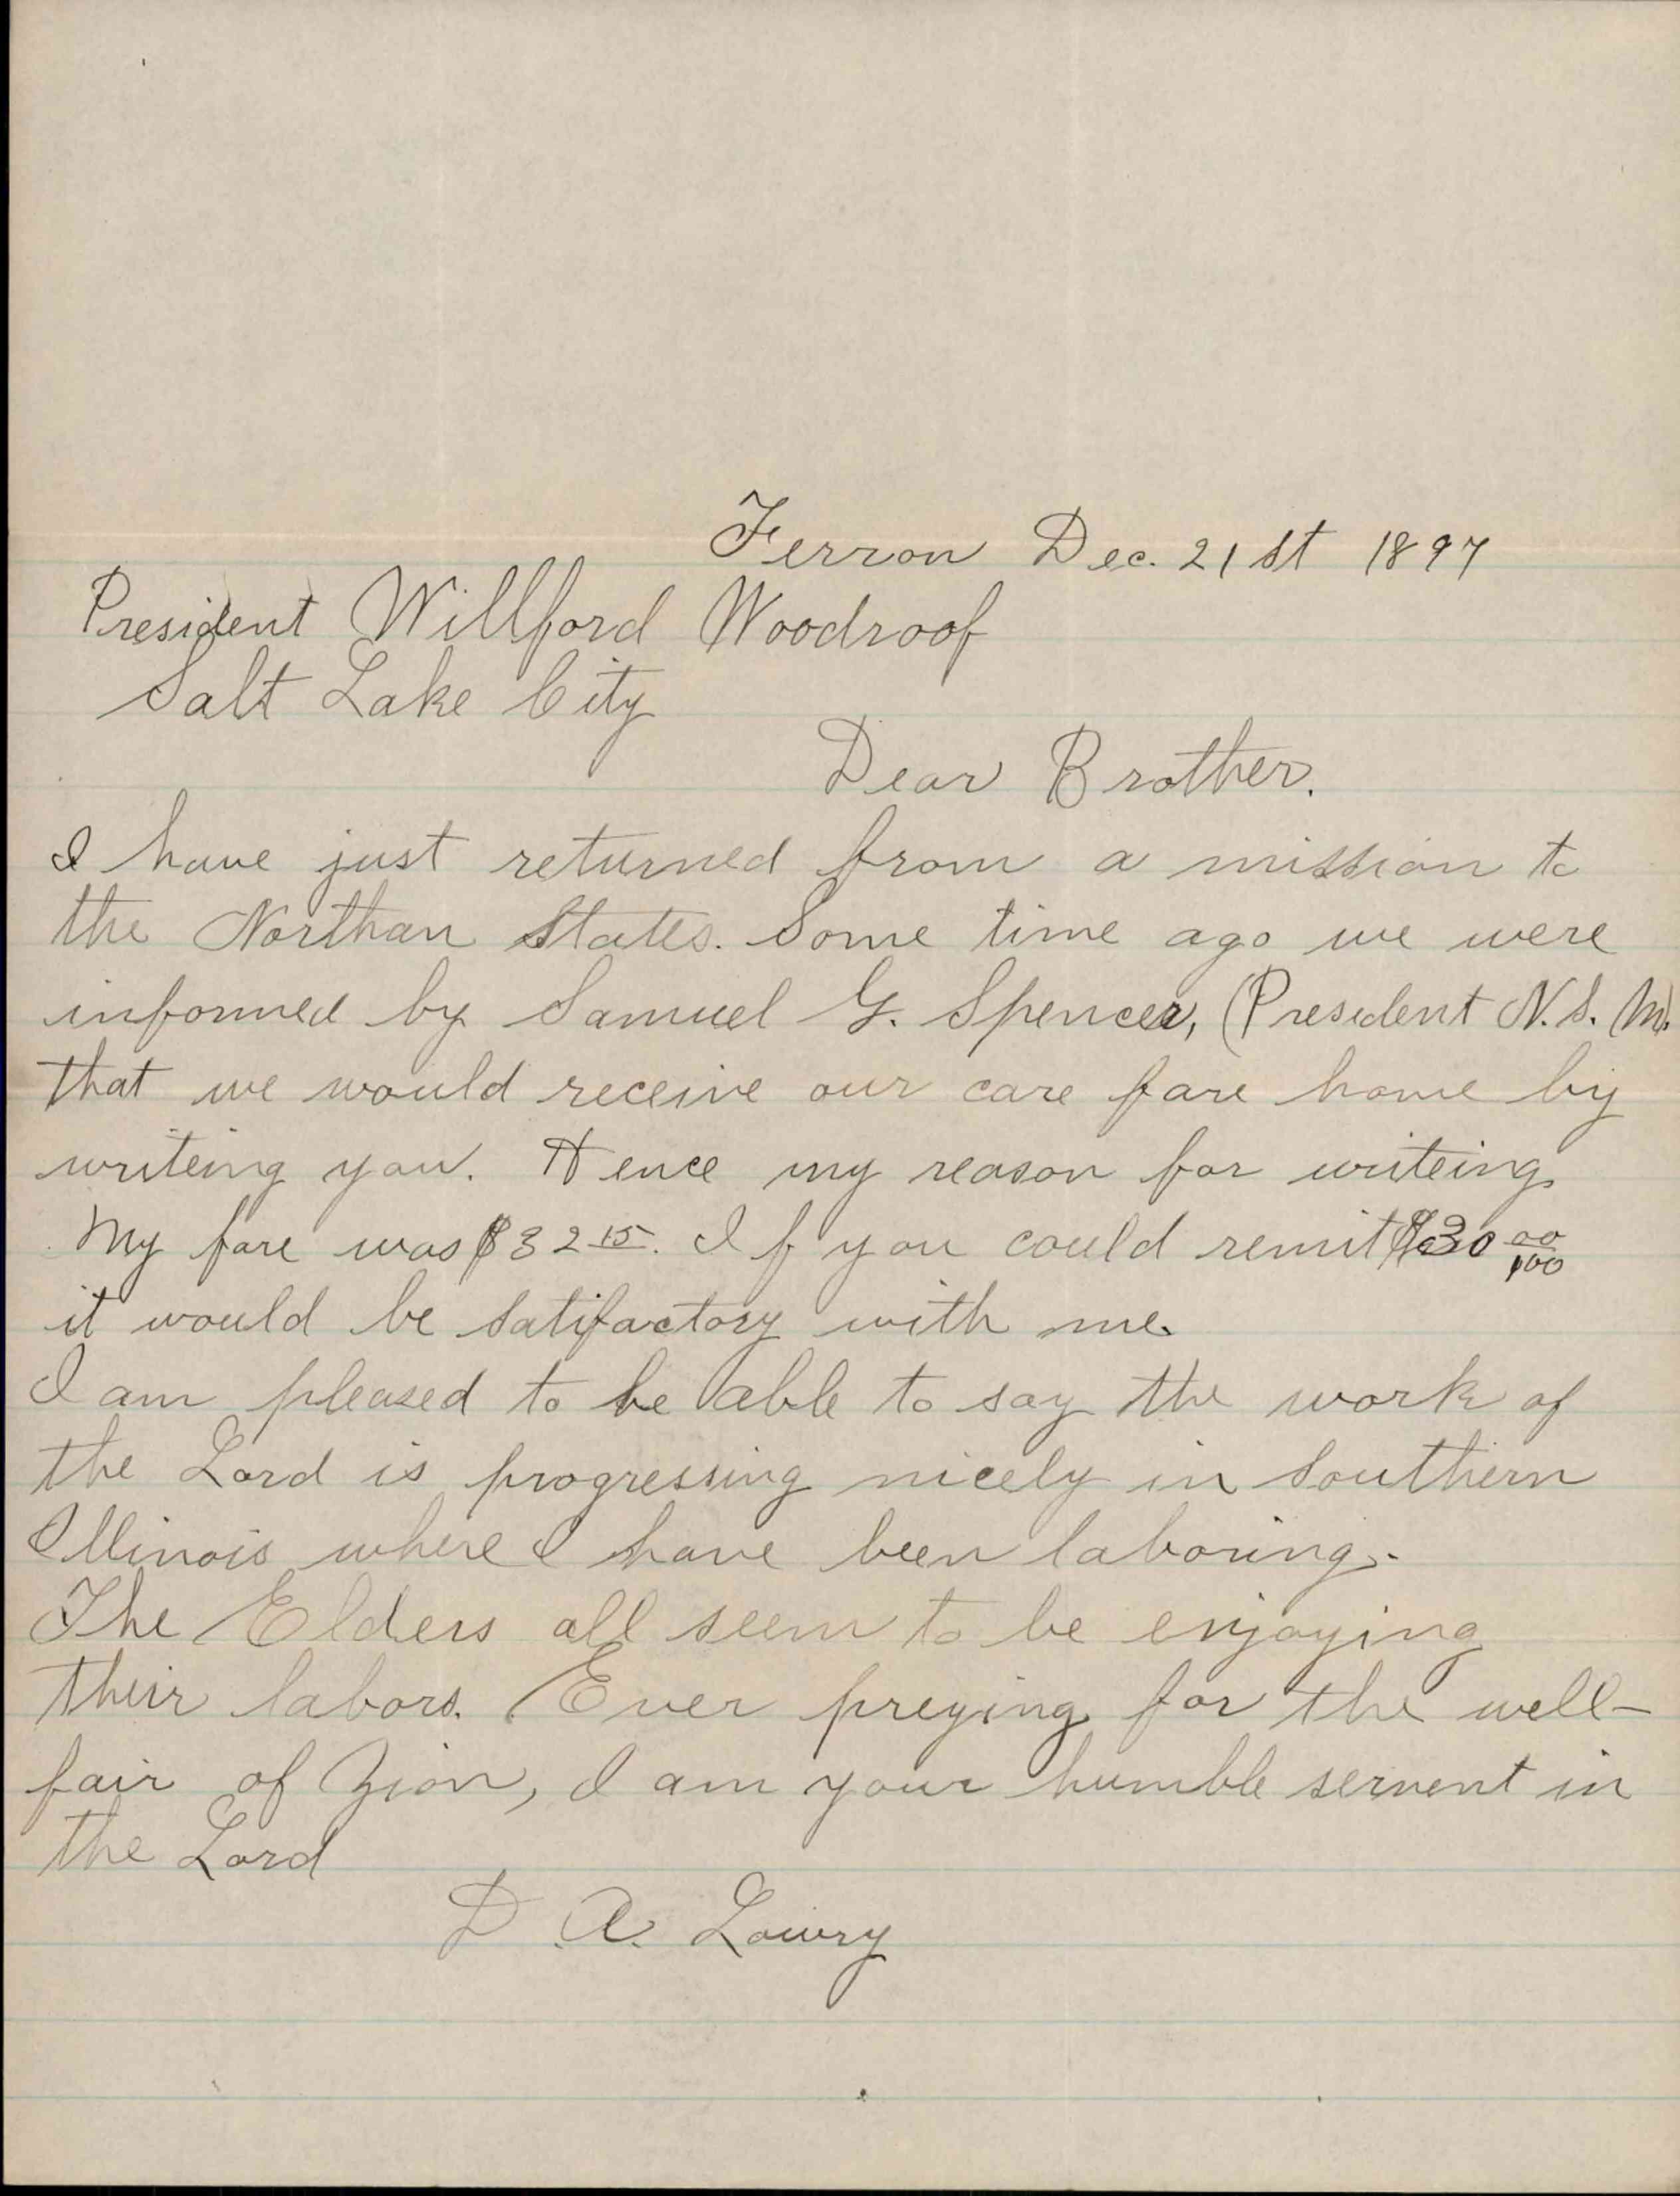 Ferron Dec. 21st 1897
President Willford Woodroof
Salt Lake City
Dear Brother.
I have just returned from a mission to
the Northan States. Some time ago we were
informed by Samuel G. Spencer, (President N.S.M.
that we would receive our care fare home by
writeing you. Hence my reason for writeing
My fare was $32 15. If you could remit $30 00/100
it would be satifactory with me.
I am pleased to be able to say the work of
the Lord is progressing nicely in Southern
Illinois where I have been laboring.
The Elders all seem to be enjoying
their labors. Ever preying for the well-
fair of Zion, I am your humble servent in
the Lord
D. A. Lowry